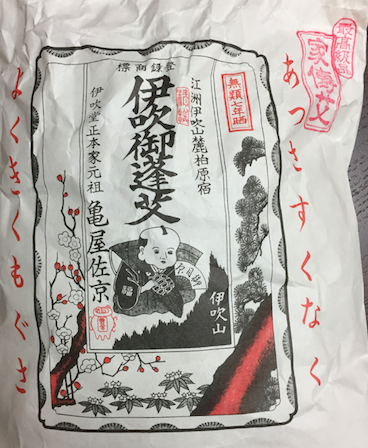 最高級品
家傳艾
あつさすくなく
登録商標
無類七年晒
江洲伊吹山麓柏原宿
伊吹御蓬艾
伊吹堂正本家元祖 亀屋佐京
福
伊吹山
よくきくもぐさ